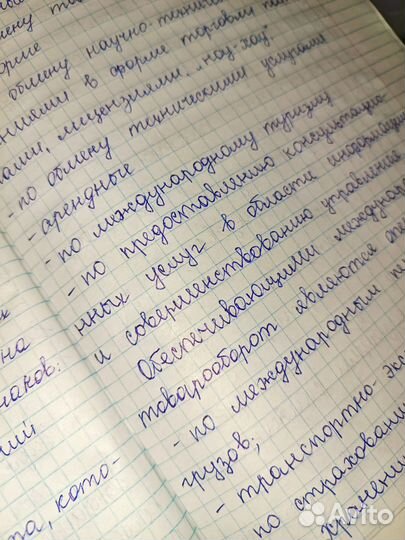 обмену научно-техни
ниями в форме торговли
ами, лицензиями, "ноу-хау".
- по обмену техническими услугами
- арендные
- по международному туризму
- по предоставлению консультацио
нных услуг в области информации
и совершенствованию управления
Обеспечивающими международ
товарооборот являются
- по международным
грузов;
- транспортно-эк
по страховани
хранени
на
наков:
ний
та, кото-
Avito